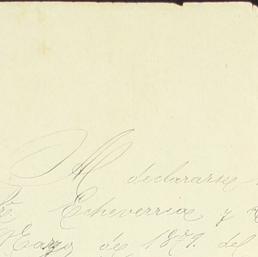 Al declararse
Echeverria y
Marzo de 1879. del